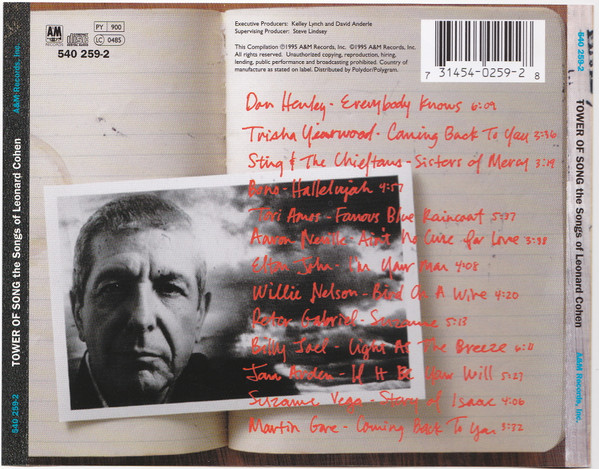 TOWER OF SONG the Songs of Leonard Cohen
A&M Records, Inc.
540 259-2
A&M
RECORDS
COMPACT
disc
DIGITAL AUDIO
PY | 900
LC 0485
540 259-2
Executive Producers: Kelley Lynch and David Anderle
Supervising Producer: Steve Lindsey
This Compilation ©1995 A&M Records, Inc. ℗1995 A&M Records, Inc. All
rights reserved. Unauthorized copying, reproduction, hiring,
lending, public performance and broadcasting prohibited. Country of
manufacture as stated on label. Distributed by Polydor/Polygram.
7 31454-0259-2 8
Don Henley - Everybody Knows 6:09
Trisha Yearwood - Coming Back To You 3:36
Sting & The Chieftans - Sisters of Mercy 3:19
Bono - Hallelujah 4:57
Tori Amos - Famous Blue Raincoat 5:37
Aaron Neville - Ain't No Cure for Love 3:38
Elton John - I'm Your Man 4:08
Willie Nelson - Bird On A Wire 4:20
Peter Gabriel - Suzanne 5:13
Billy Joel - Light As The Breeze 6:11
Jann Arden - If It Be Your Will 5:27
Suzanne Vega - Story of Isaac 4:06
Martin Gore - Coming Back To You 3:32
540 259-2
TOWER OF SONG the Songs of Leonard Cohen
A&M Records, Inc.